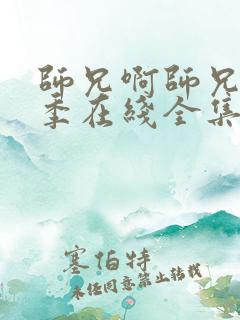 師兄啊師兄
季在綫全集
塞伯特
未经同意禁止转载